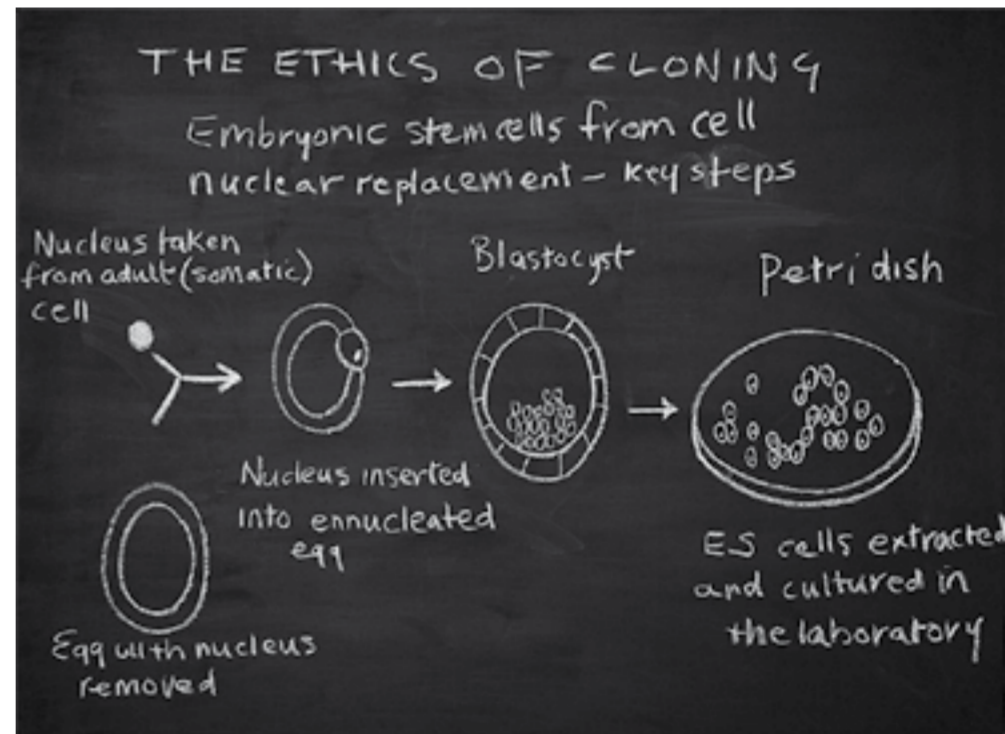 THE ETHICS OF CLONING
Embryonic stem cells from cell
nuclear replacement - key steps
Nucleus taken
from adult (somatic)
cell
Blastocyst
Petri dish
Nucleus inserted
into ennucleated
egg
Egg with nucleus
removed
ES cells extracted
and cultured in
the laboratory